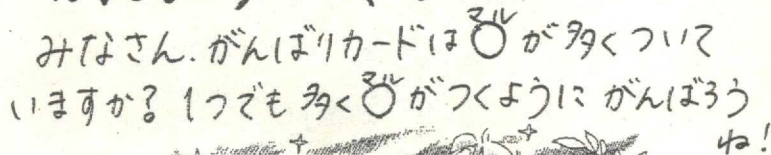 みなさん、がんばりカードは〇が多くついて
いますか？1つでも多く〇がつくように がんばろう
ね！